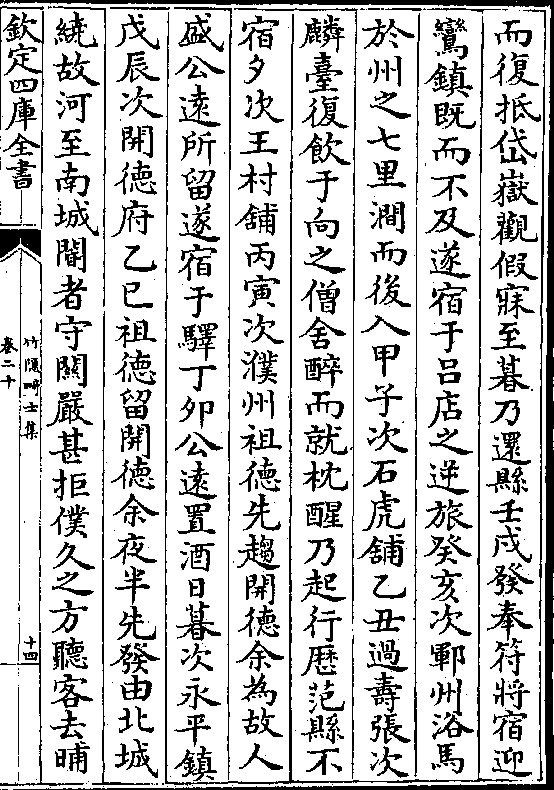 而復抵岱嶽觀假寐至暮乃還縣壬戌發奉符將宿迎
鸞鎮既而不及遂宿于吕店之逆旅癸亥次鄆州浴馬
於州之七里澗而後入甲子次石虎舖乙丑過壽張次
麟臺復飲于向之僧舍醉而就枕醒乃起行歴范縣不
宿夕次王村舖丙寅次濮州祖德先趨開德余為故人
盛公遠所留遂宿于驛丁夘公遠置酒日暮次永平鎮
戊辰次開德府乙巳祖德留開德余夜半先發由北城
繞故河至南城閽者守關嚴甚拒僕久之方聽客去晡
欽定四庫全書
竹隱畸士集
卷二十
十四